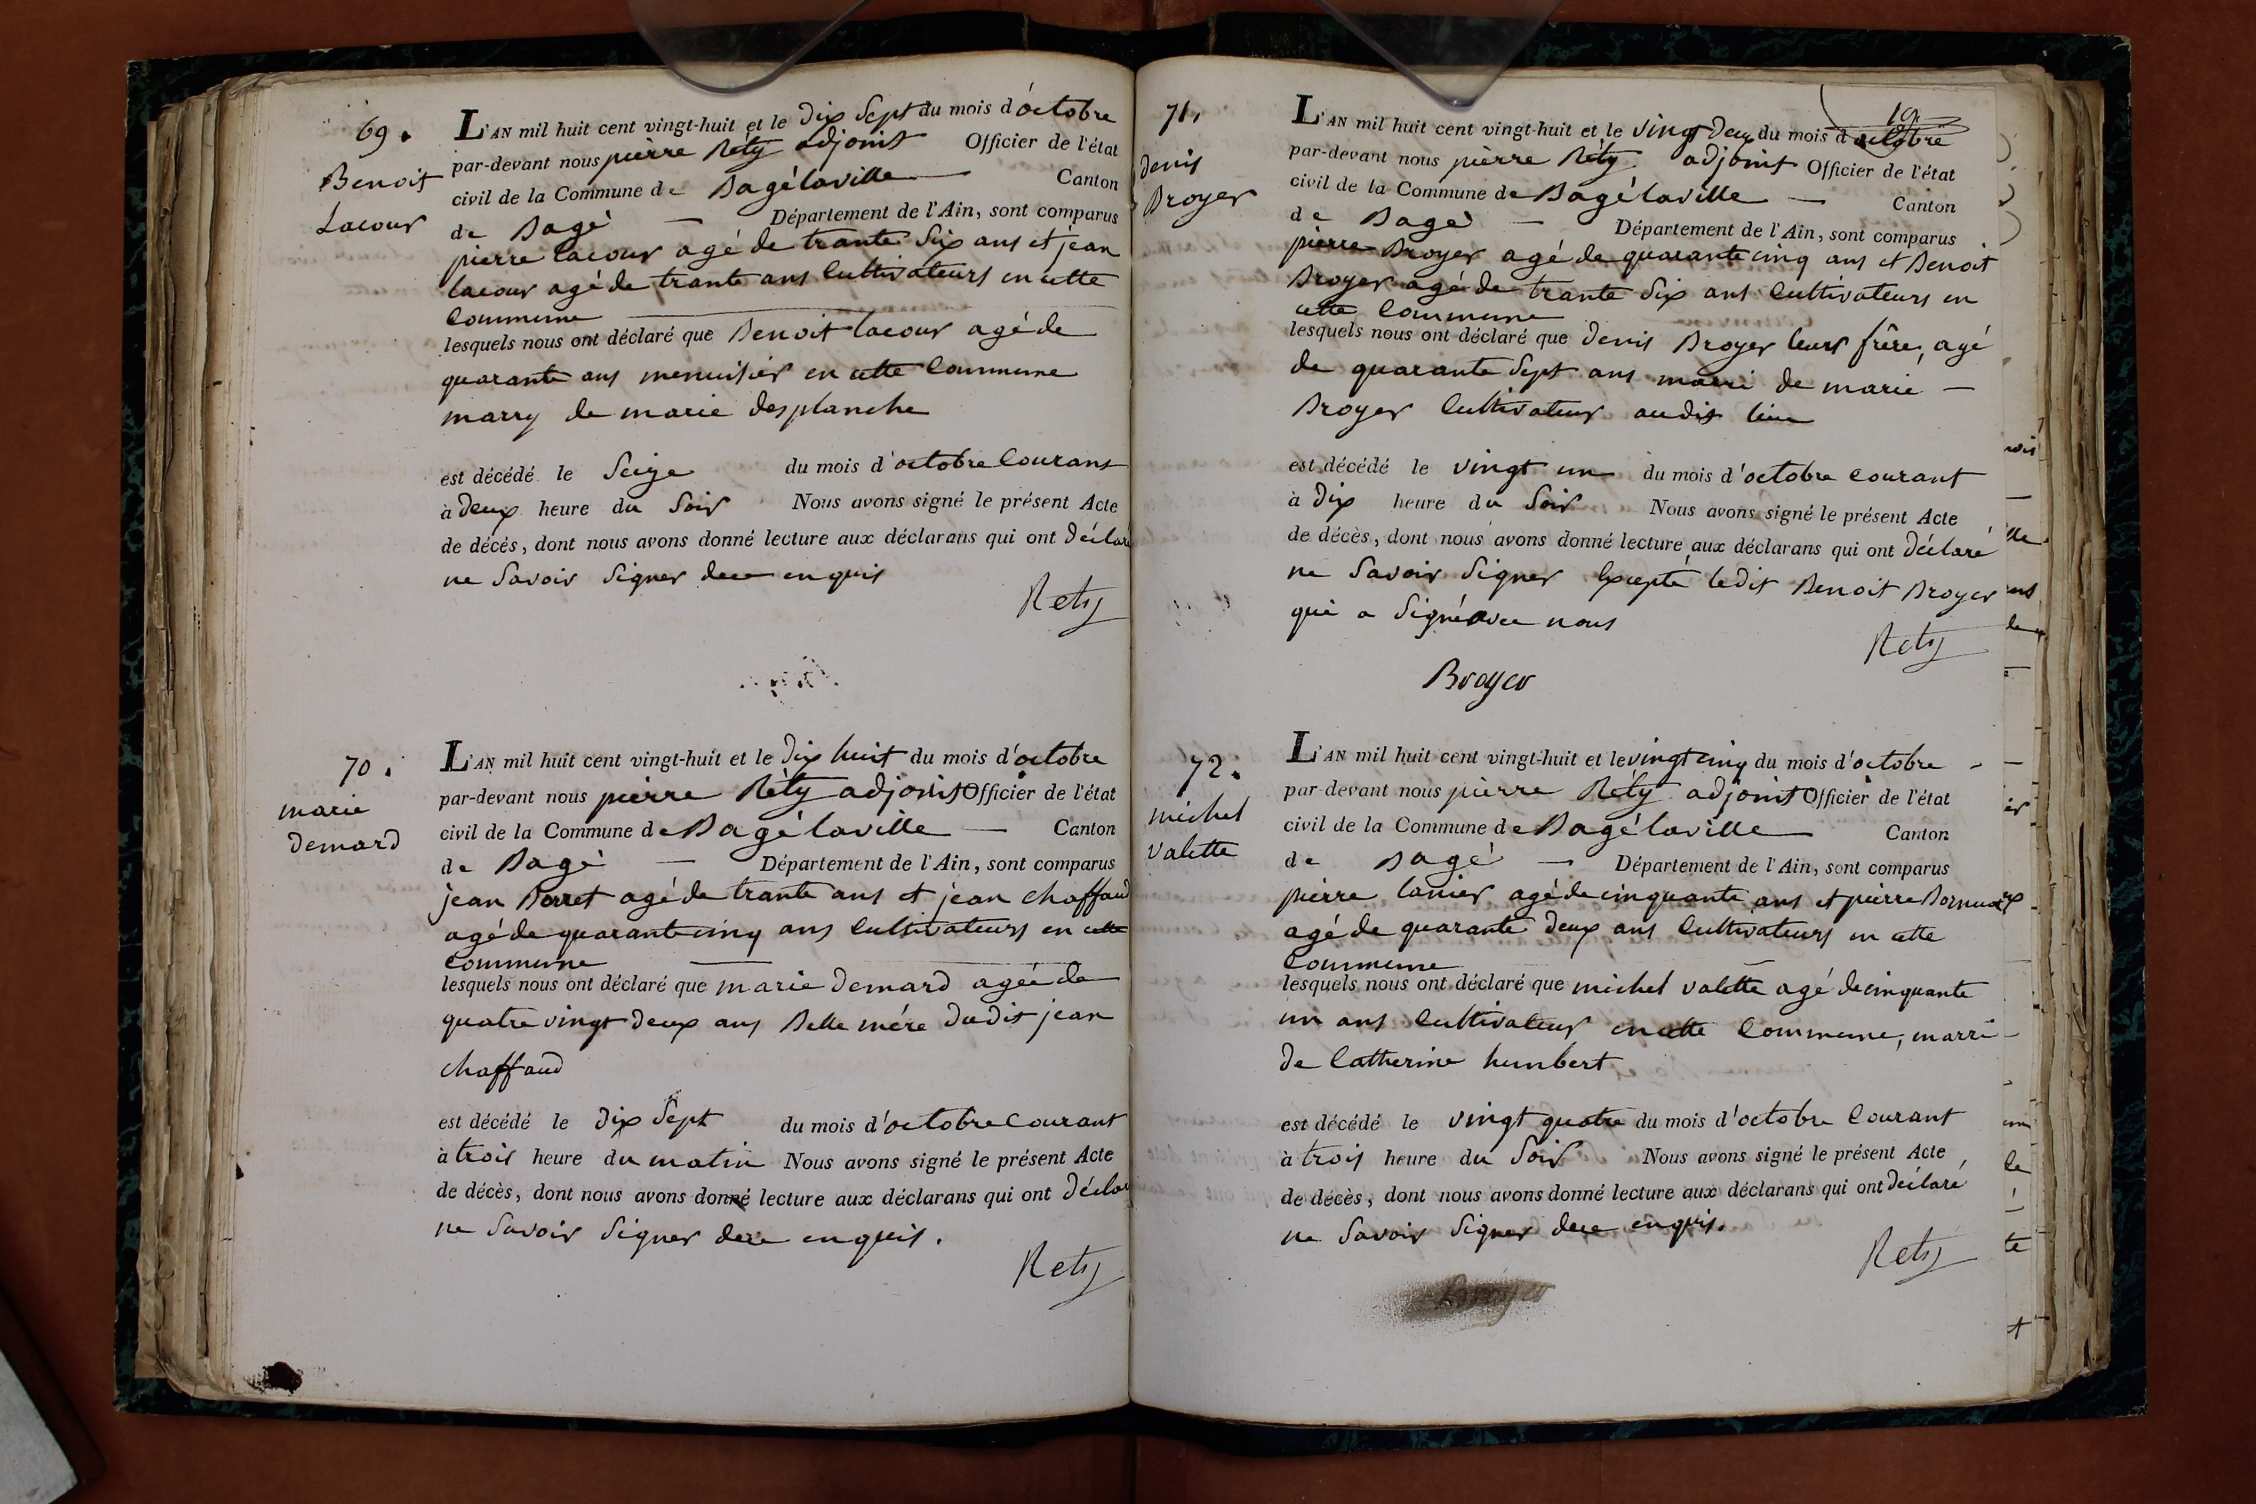 69.
Benoit
Lacour
L'AN mil huit cent vingt-huit et le dix Sept du mois d'octobre
par-devant nous pierre Réty adjoint Officier de l'état
civil de la Commune de Bagélaville — Canton
de Bagé — Département de l'Ain, sont comparus
pierre lacour agé de trante Six ans et jean
lacour agé de trante ans Cultivateurs en cette
Commune
lesquels nous ont déclaré que Benoit lacour agé de
quarante ans menuisier en cette Commune
marry de marie desplanche
est décédé le Seize du mois d'octobre Courant
à deux heure du Soir Nous avons signé le présent Acte
de décès, dont nous avons donné lecture aux déclarans qui ont déclaré
ne Savoir Signer dece enquis
Rety
70.
marie
demard
L'AN mil huit cent vingt-huit et le dix huit du mois d'octobre
par-devant nous pierre Réty adjoint Officier de l'état
civil de la Commune de Bagélaville — Canton
de Bagé — Département de l'Ain, sont comparus
jean Borret agé de trante ans et jean chaffaud
agé de quarante cinq ans Cultivateurs en cette
Commune
lesquels nous ont déclaré que marie demard agée de
quatre vingt deux ans Belle mére dudit jean
chaffaud
est décédé le dix Sept du mois d'octobre Courant
à trois heure du matin Nous avons signé le présent Acte
de décès, dont nous avons donné lecture aux déclarans qui ont déclaré
ne Savoir Signer dece enquis.
Rety
19
71,
denis
Broyer
L'AN mil huit cent vingt-huit et le vingt deux du mois d'octobre
par-devant nous pierre Réty adjoint Officier de l'état
civil de la Commune de Bagélaville — Canton
de Bagé — Département de l'Ain, sont comparus
pierre Broyer agé de quarante cinq ans et Benoit
Broyer agé de trante Six ans Cultivateurs en
cette Commune
lesquels nous ont déclaré que denis Broyer leurs frêre, agé
de quarante Sept ans marri de marie —
Broyer Cultivateur audit lieu
est décédé le vingt un du mois d'octobre courant
à dix heure du Soir Nous avons signé le présent Acte
de décès, dont nous avons donné lecture aux déclarans qui ont déclaré
ne Savoir Signer Excepté ledit Benoit Broyer
qui a Signé avec nous
Rety
Broyer
72.
michel
valette
L'AN mil huit cent vingt-huit et le vingt cinq du mois d'octobre
par-devant nous pierre Réty adjoint Officier de l'état
civil de la Commune de Bagélaville — Canton
de Bagé — Département de l'Ain, sont comparus
pierre lanier agé de cinquante ans et pierre
agé de quarante deux ans Cultivateurs en cette
Commune
lesquels nous ont déclaré que michel valette agé de cinquante
un ans Cultivateur en cette Commune, marri
de Catherine humbert
est décédé le vingt quatre du mois d'octobre Courant
à trois heure du Soir Nous avons signé le présent Acte
de décès, dont nous avons donné lecture aux déclarans qui ont déclaré
ne Savoir Signer dece enquis.
Rety